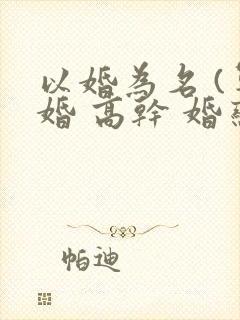 以婚為名(
婚 高幹 婚
帕迪